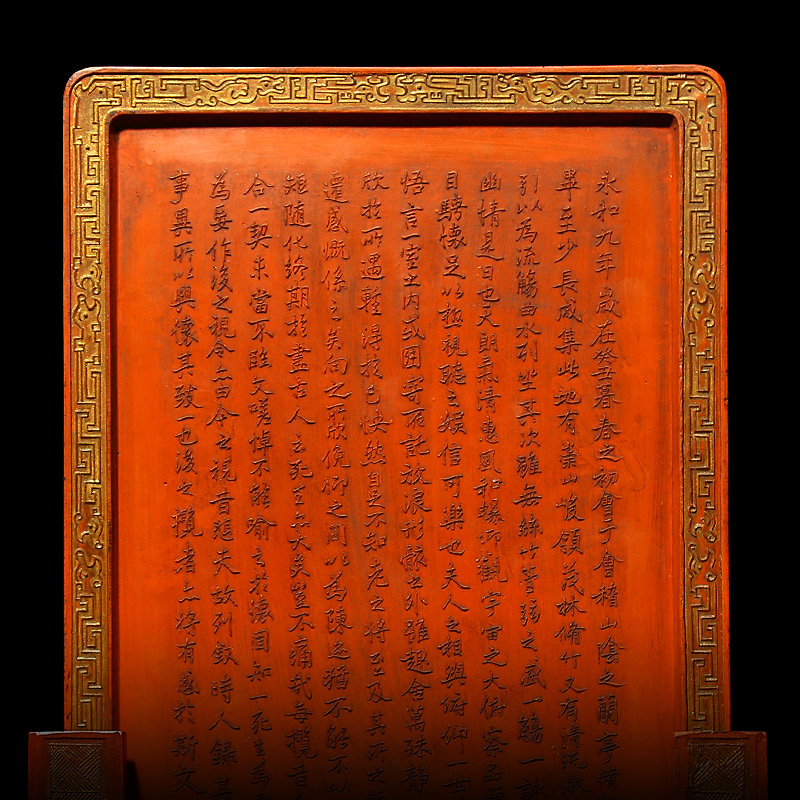 永和九年歲在癸丑暮春之初會于會稽山陰之蘭亭脩
畢至少長咸集此地有崇山峻領茂林脩竹又有清流激
引以為流觴曲水列坐其次雖無絲竹管弦之盛一觴一詠
幽情是日也天朗氣清惠風和暢仰觀宇宙之大俯察品類
目騁懷足以極視聽之娛信可樂也夫人之相與俯仰一世
悟言一室之內或因寄所託放浪形骸之外雖趣舍萬殊靜
欣於所遇輒得於己怏然自足不知老之將至及其所之
遷感慨係之矣向之所欣俛仰之間以為陳迹猶不能不以
短隨化終期於盡古人云死生亦大矣豈不痛哉每攬昔
合一契未嘗不臨文嗟悼不能喻之於懷固知一死生為
為妄作後之視今亦由今之視昔悲夫故列敘時人錄其
事異所以興懷其致一也後之攬者亦將有感於斯文